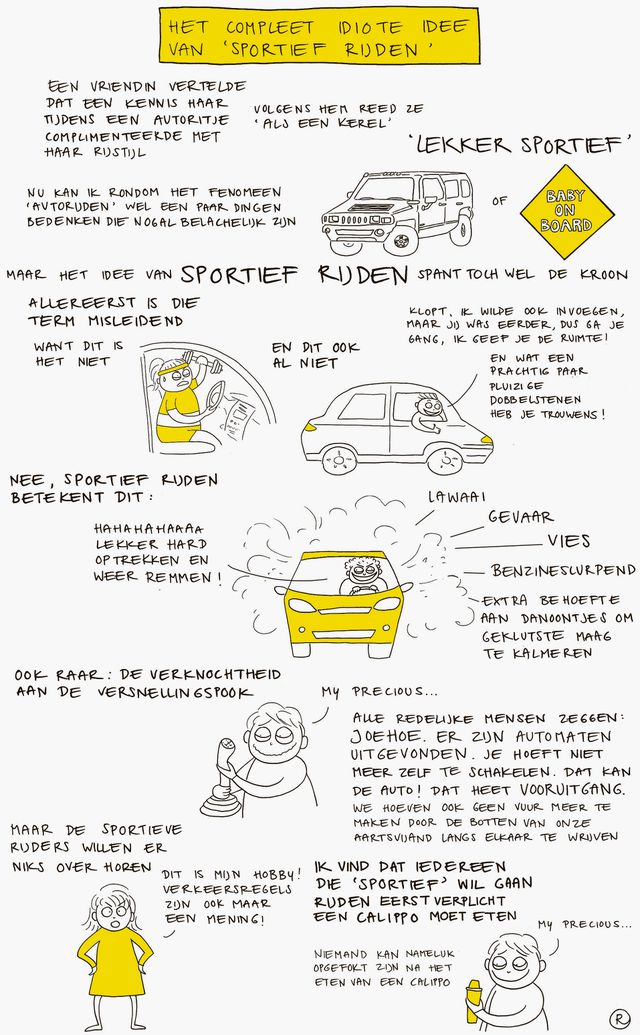 HET COMPLEET IDIOTE IDEE
VAN 'SPORTIEF RIJDEN'
EEN VRIENDIN VERTELDE
DAT EEN KENNIS HAAR
TIJDENS EEN AUTORITJE
COMPLIMENTEERDE MET
HAAR RIJSTIJL
VOLGENS HEM REED ZE
'ALS EEN KEREL'
'LEKKER SPORTIEF'
NU KAN IK RONDOM HET FENOMEEN
'AUTORIJDEN' WEL EEN PAAR DINGEN
BEDENKEN DIE NOGAL BELACHELIJK ZIJN
OF
BABY
ON
BOARD
MAAR HET IDEE VAN SPORTIEF RIJDEN SPANT TOCH WEL DE KROON
ALLEREERST IS DIE
TERM MISLEIDEND
WANT DIT IS
HET NIET
EN DIT OOK
AL NIET
KLOPT, IK WILDE OOK INVOEGEN,
MAAR JIJ WAS EERDER, DUS GA JE
GANG, IK GEEF JE DE RUIMTE!
EN WAT EEN
PRACHTIG PAAR
PLUIZIGE
DOBBELSTENEN
HEB JE TROUWENS!
NEE, SPORTIEF RIJDEN
BETEKENT DIT:
HAHAHAHAAAA
LEKKER HARD
OPTREKKEN EN
WEER REMMEN!
LAWAAI
GEVAAR
VIES
BENZINESLURPEND
EXTRA BEHOEFTE
AAN DANOONTJES OM
GEKLUTSTE MAAG
TE KALMEREN
OOK RAAR: DE VERKNOCHTHEID
AAN DE VERSNELLINGSPOOK
MY PRECIOUS...
ALLE REDELIJKE MENSEN ZEGGEN:
JOEHOE. ER ZIJN AUTOMATEN
UITGEVONDEN. JE HOEFT NIET
MEER ZELF TE SCHAKELEN. DAT KAN
DE AUTO! DAT HEET VOORUITGANG.
WE HOEVEN OOK GEEN VUUR MEER TE
MAKEN DOOR DE BOTTEN VAN ONZE
AARTSVIJAND LANGS ELKAAR TE WRIJVEN
MAAR DE SPORTIEVE
RIJDERS WILLEN ER
NIKS OVER HOREN
DIT IS MIJN HOBBY!
VERKEERSREGELS
ZIJN OOK MAAR
EEN MENING!
IK VIND DAT IEDEREEN
DIE 'SPORTIEF' WIL GAAN
RIJDEN EERST VERPLICHT
EEN CALIPPO MOET ETEN
MY PRECIOUS...
NIEMAND KAN NAMELIJK
OPGEFOKT ZIJN NA HET
ETEN VAN EEN CALIPPO
R